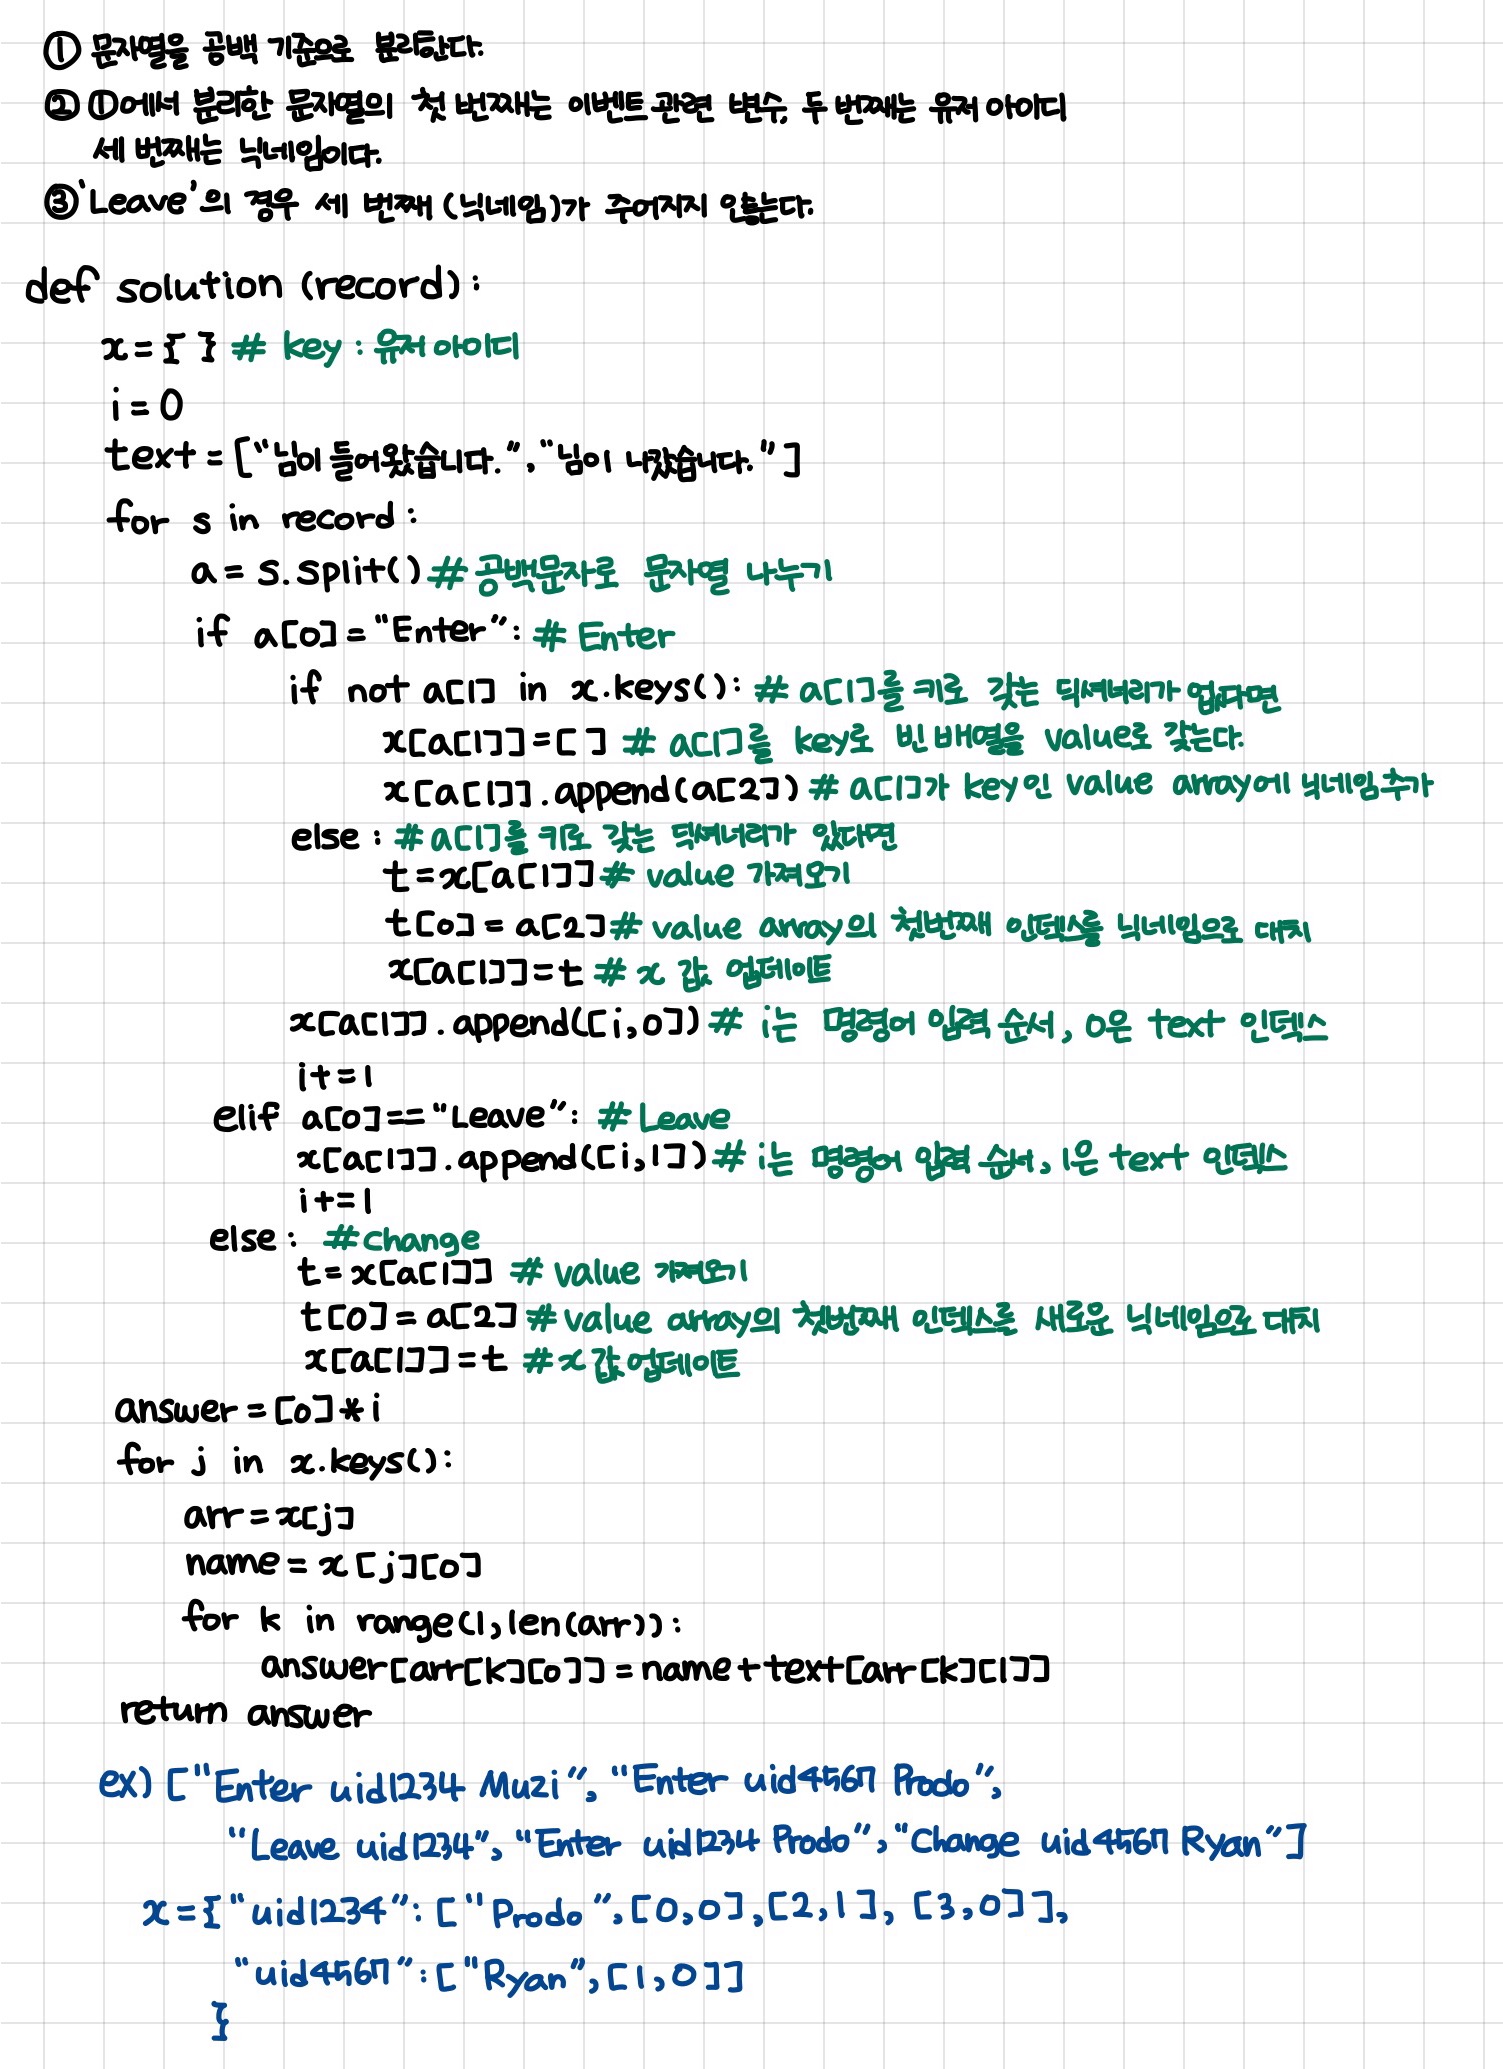 ① 문자열을 공백 기준으로 분리한다.
② ①에서 분리한 문자열의 첫 번째는 이벤트 관련 변수, 두 번째는 유저 아이디
세 번째는 닉네임이다.
③ 'Leave'의 경우 세 번째 (닉네임)가 주어지지 않는다.
def solution (record):
x = { } # key : 유저 아이디
i = 0
text = ["님이 들어왔습니다.", "님이 나갔습니다."]
for s in record:
a = s.split() # 공백문자로 문자열 나누기
if a[0] = "Enter": # Enter
if not a[1] in x.keys(): # a[1]를 키로 갖는 딕셔너리가 없다면
x[a[1]] = [ ] # a[1]를 key로 빈 배열을 value로 갖는다.
x[a[1]].append(a[2]) # a[1]가 key인 value array에 닉네임 추가
else : # a[1]를 키로 갖는 딕셔너리가 있다면
t = x[a[1]] # value 가져오기
t[0] = a[2] # value array의 첫번째 인덱스를 닉네임으로 대치
x[a[1]] = t # x 값 업데이트
x[a[1]].append([i,0]) # i는 명령어 입력 순서, 0은 text 인덱스
i+=1
elif a[0]=="Leave": # Leave
x[a[1]].append([i,1]) # i는 명령어 입력 순서, 1은 text 인덱스
i+=1
else : #change
t = x[a[1]] # value 가져오기
t[0] = a[2] # value array의 첫번째 인덱스를 새로운 닉네임으로 대치
x[a[1]] = t # x 값 업데이트
answer = [0]*i
for j in x.keys():
arr = x[j]
name = x[j][0]
for k in range(1,len(arr)):
answer[arr[k][0]] = name + text[arr[k][1]]
return answer
ex) ["Enter uid1234 Muzi", "Enter uid4567 Prodo",
"Leave uid1234", "Enter uid1234 Prodo", "Change uid4567 Ryan"]
x = { "uid1234": ["Prodo", [0,0], [2,1], [3,0]],
"uid4567": ["Ryan", [1,0]]
}